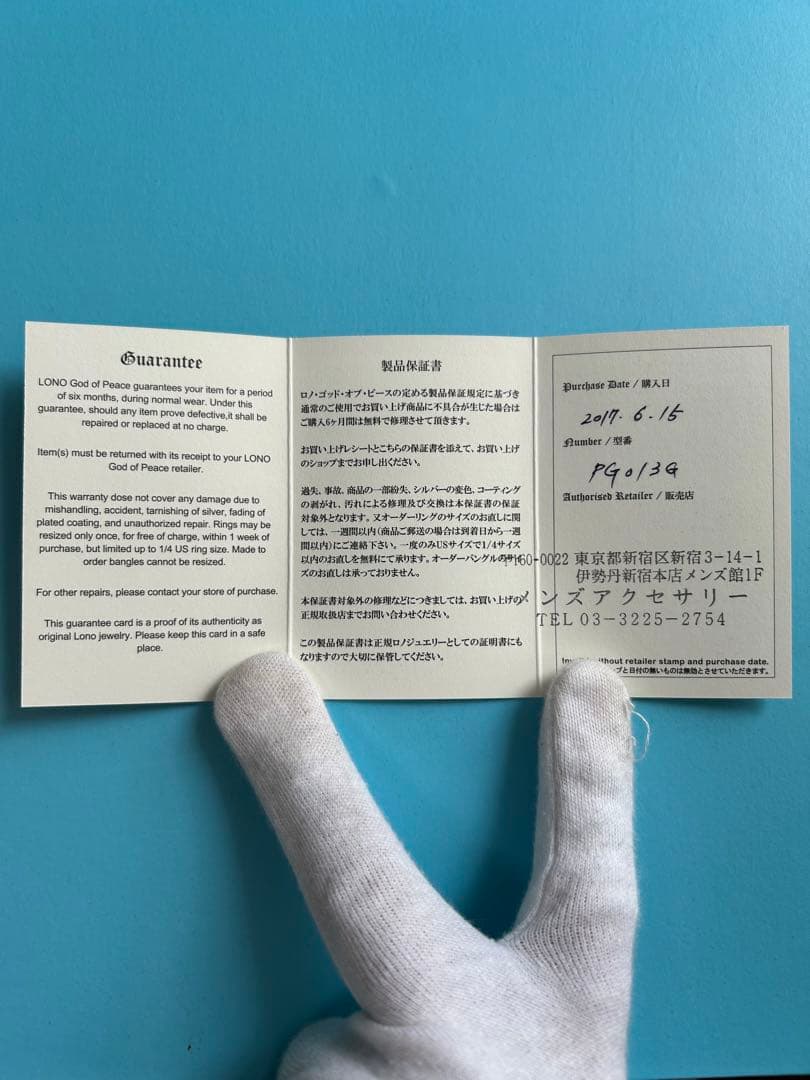 Guarantee
LONO God of Peace guarantees your item for a period
of six months, during normal wear. Under this
guarantee, should any item prove defective,it shall be
repaired or replaced at no charge.
Item(s) must be returned with its receipt to your LONO
God of Peace retailer.
This warranty dose not cover any damage due to
mishandling, accident, tarnishing of silver, fading of
plated coating, and unauthorized repair. Rings may be
resized only once, for free of charge, within 1 week of
purchase, but limited up to 1/4 US ring size. Made to
order bangles cannot be resized.
For other repairs, please contact your store of purchase.
This guarantee card is a proof of its authenticity as
original Lono jewelry. Please keep this card in a safe
place.
製品保証書
ロノ・ゴッド・オブ・ピースの定める製品保証規定に基づき
通常のご使用でお買い上げ商品に不具合が生じた場合は
ご購入6ヶ月間は無料で修理させて頂きます。
お買い上げレシートとこちらの保証書を添えて、お買い上げ
のショップまでお申し出ください。
過失、事故、商品の一部紛失、シルバーの変色、コーティング
の剥がれ、汚れによる修理及び交換は本保証書の保証
対象外となります。又オーダーリングのサイズのお直しに関
しては、一週間以内(商品ご郵送の場合は到着日から一週
間以内)にご連絡下さい。一度のみUSサイズで1/4サイズ
以内のお直しを無料にて承ります。オーダーバングルのサイ
ズのお直しは承っておりません。
本保証書対象外の修理などにつきましては、お買い上げの
正規取扱店までお問い合わせください。
この製品保証書は正規ロノジュエリーとしての証明書にも
なりますので大切に保管してください。
Purchase Date / 購入日
2017. 6. 15
Number / 型番
PG013G
Authorised Retailer / 販売店
〒160-0022 東京都新宿区新宿3-14-1
伊勢丹新宿本店メンズ館1F
メンズアクセサリー
TEL 03-3225-2754
without retailer stamp and purchase date.
と日付の無いものは無効とさせていただきます。